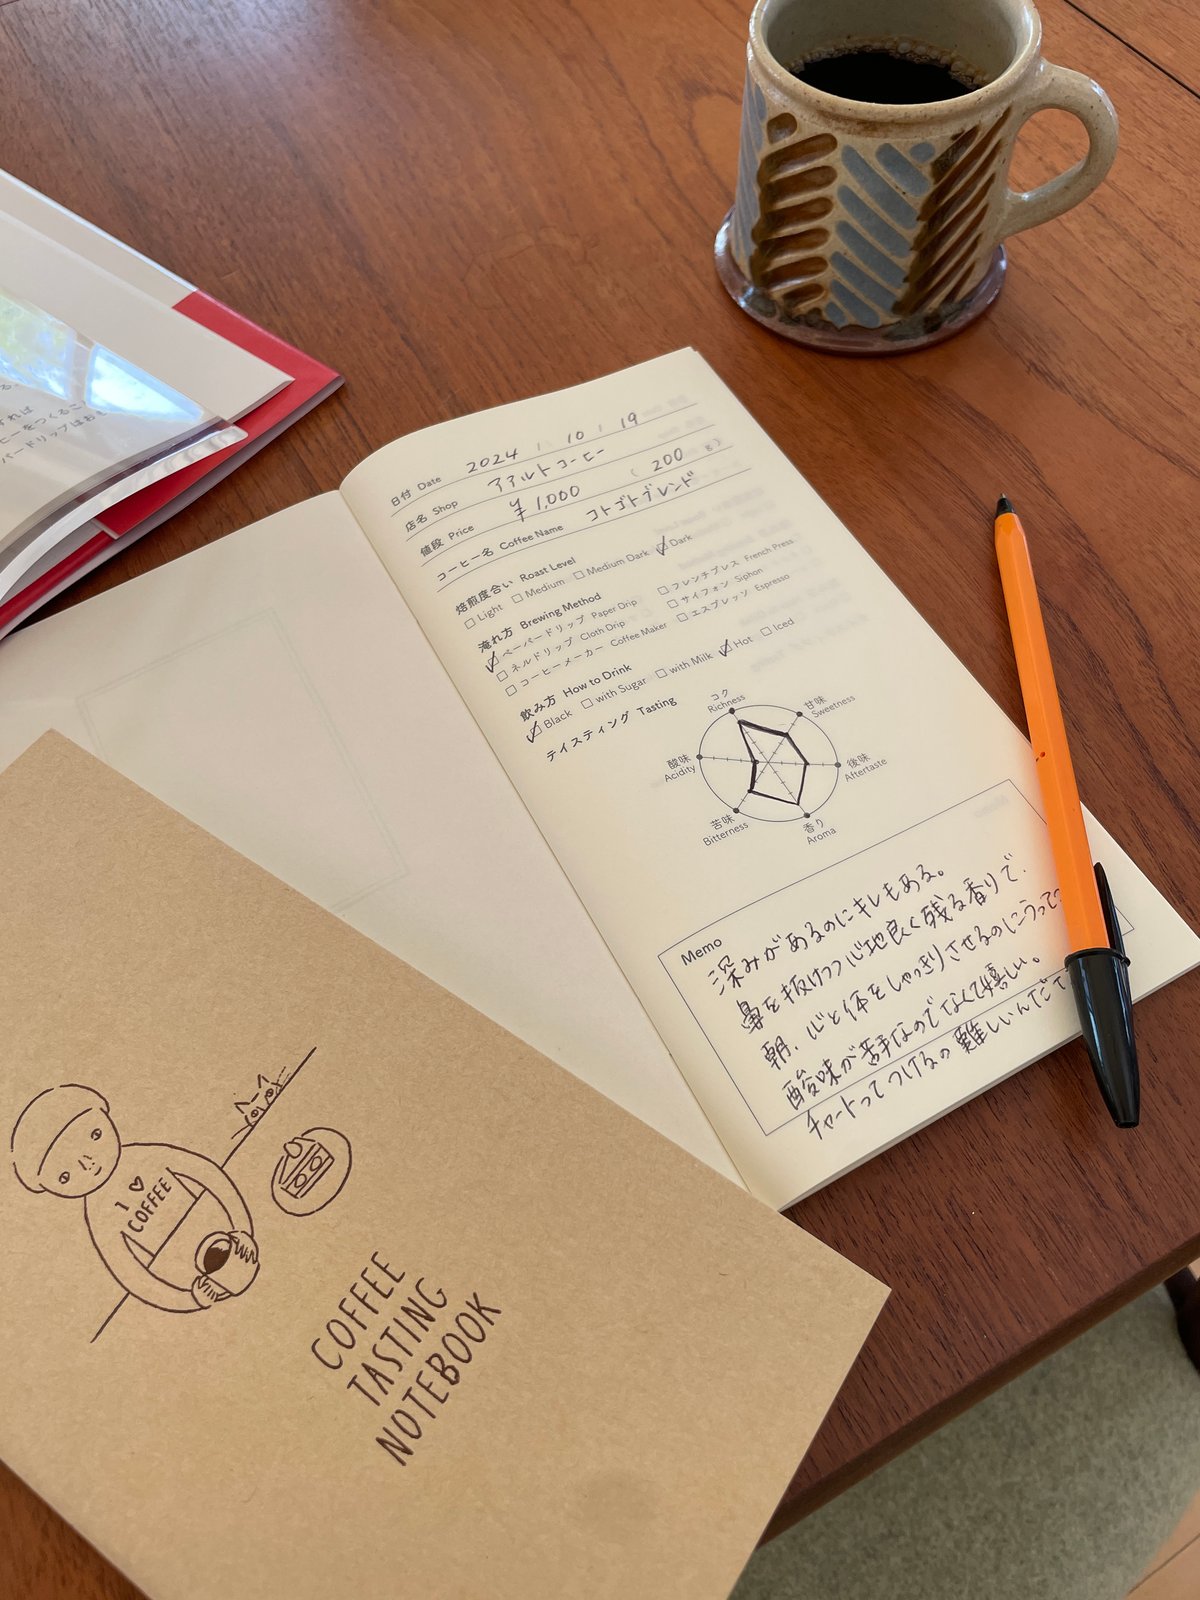 すれば
ヒーをつくるこ
パードリップはおも
日付 Date 2024 / 10 / 19
店名 Shop アアルトコーヒー
値段 Price ¥1,000 ( 200 g)
コーヒー名 Coffee Name コトゴトブレンド
焙煎度合い Roast Level
Light Medium Medium Dark Dark
淹れ方 Brewing Method
ペーパードリップ Paper Drip フレンチプレス French Press
ネルドリップ Cloth Drip サイフォン Siphon
コーヒーメーカー Coffee Maker エスプレッソ Espresso
飲み方 How to Drink
Black with Sugar with Milk Hot Iced
テイスティング Tasting
コク Richness
甘味 Sweetness
酸味 Acidity
後味 Aftertaste
苦味 Bitterness
香り Aroma
Memo
深みがあるのにキレもある。
鼻を抜けつつ心地良く残る香りで、
朝、心と体をしゃっきりさせるのにうって
酸味が苦手なのでなくて嬉しい。
チャートってつけるの難しいんだて
I ♡
COFFEE
COFFEE
TASTING
NOTEBOOK